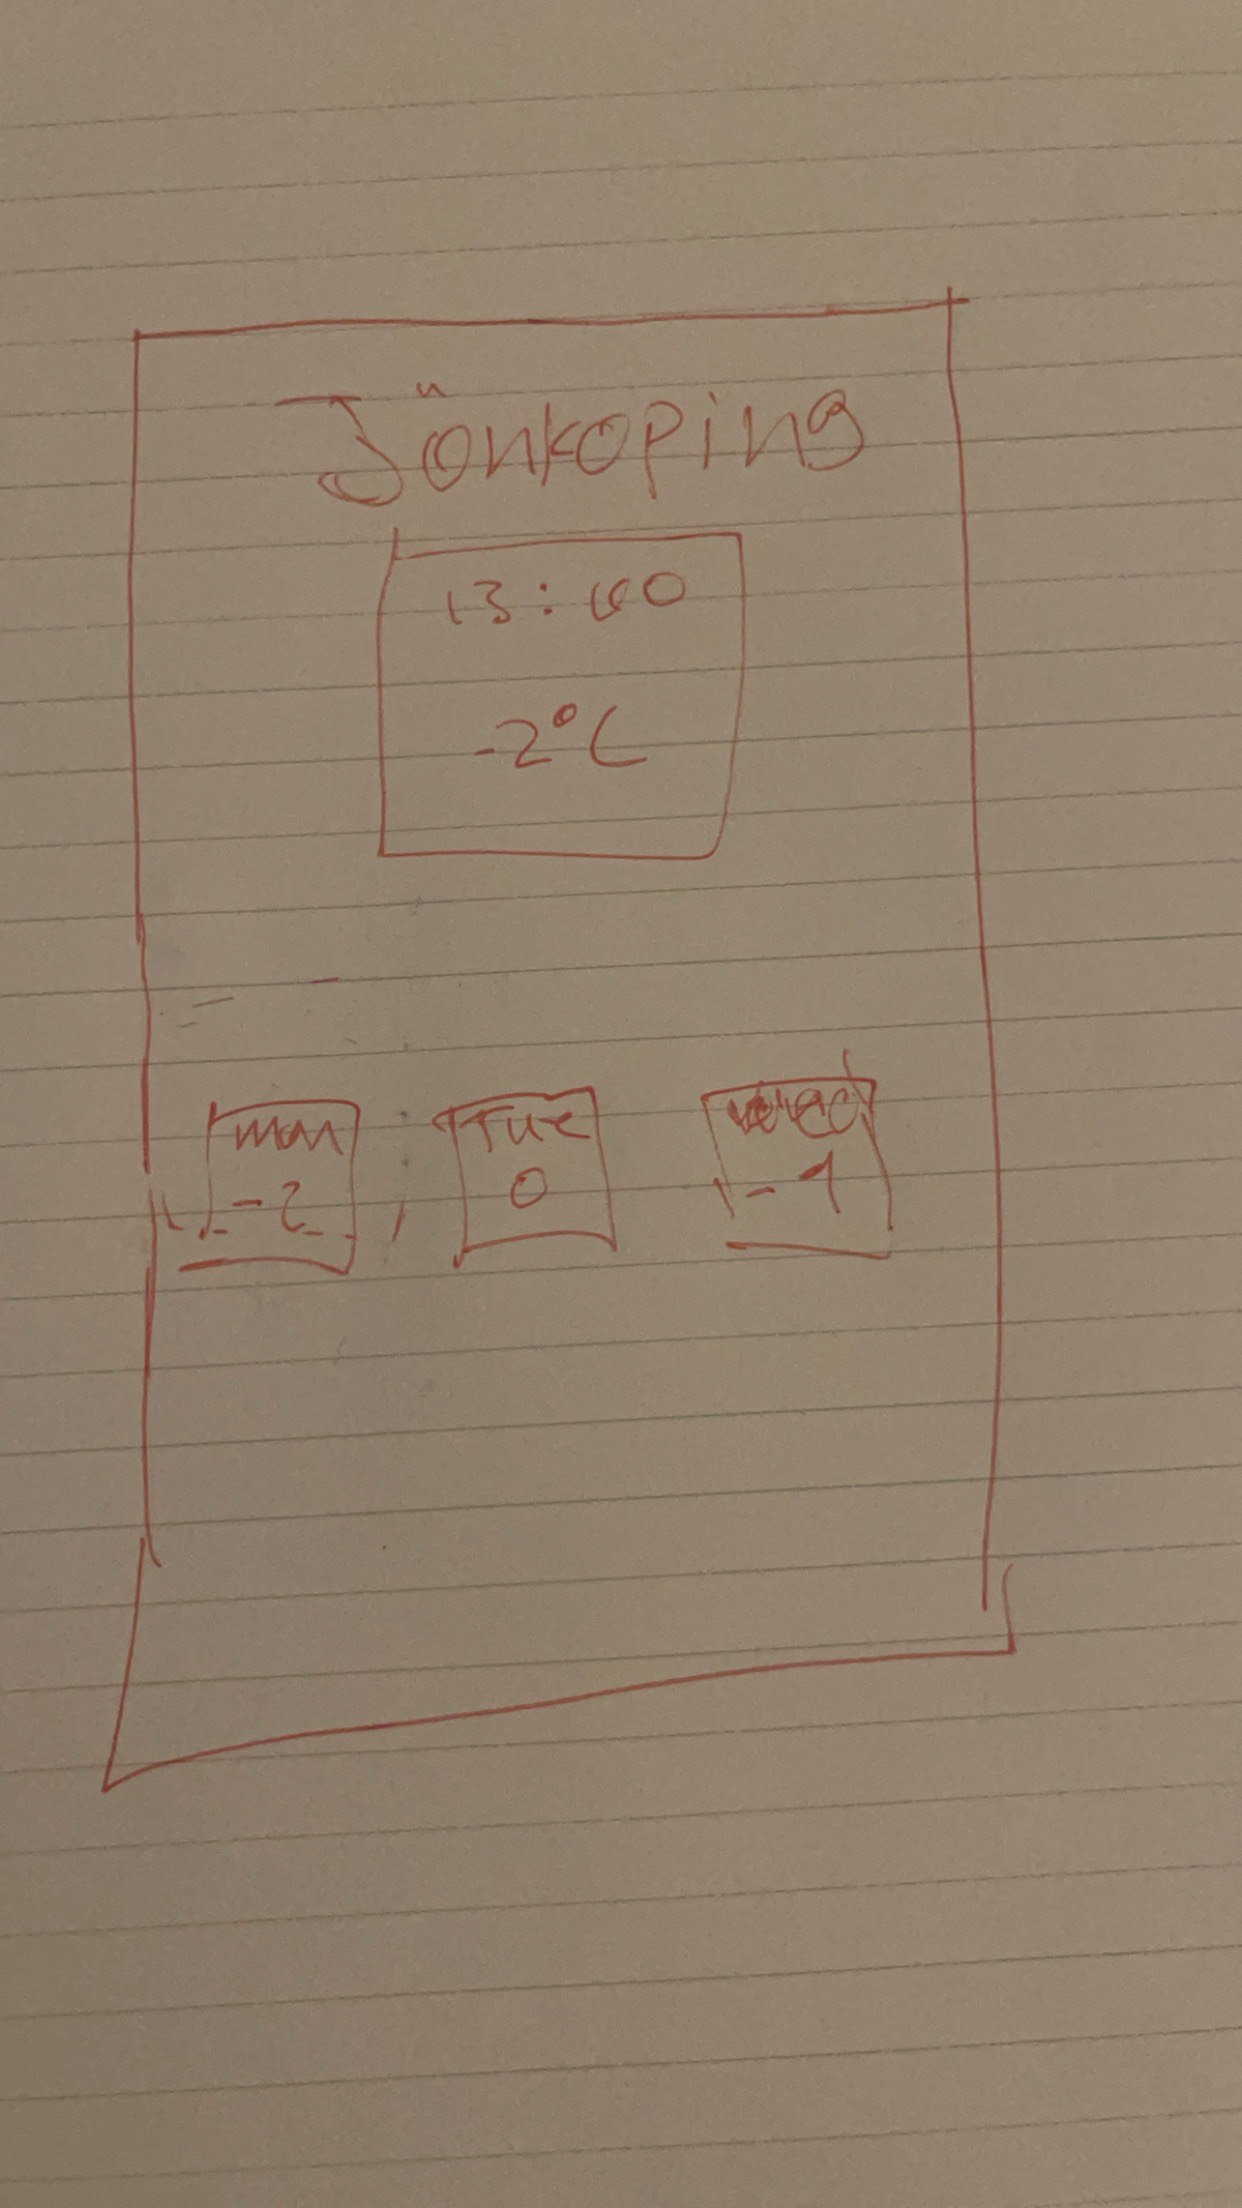 Jönkoping
13:00
-2°C
mon
-2
Tue
0
wed
-1